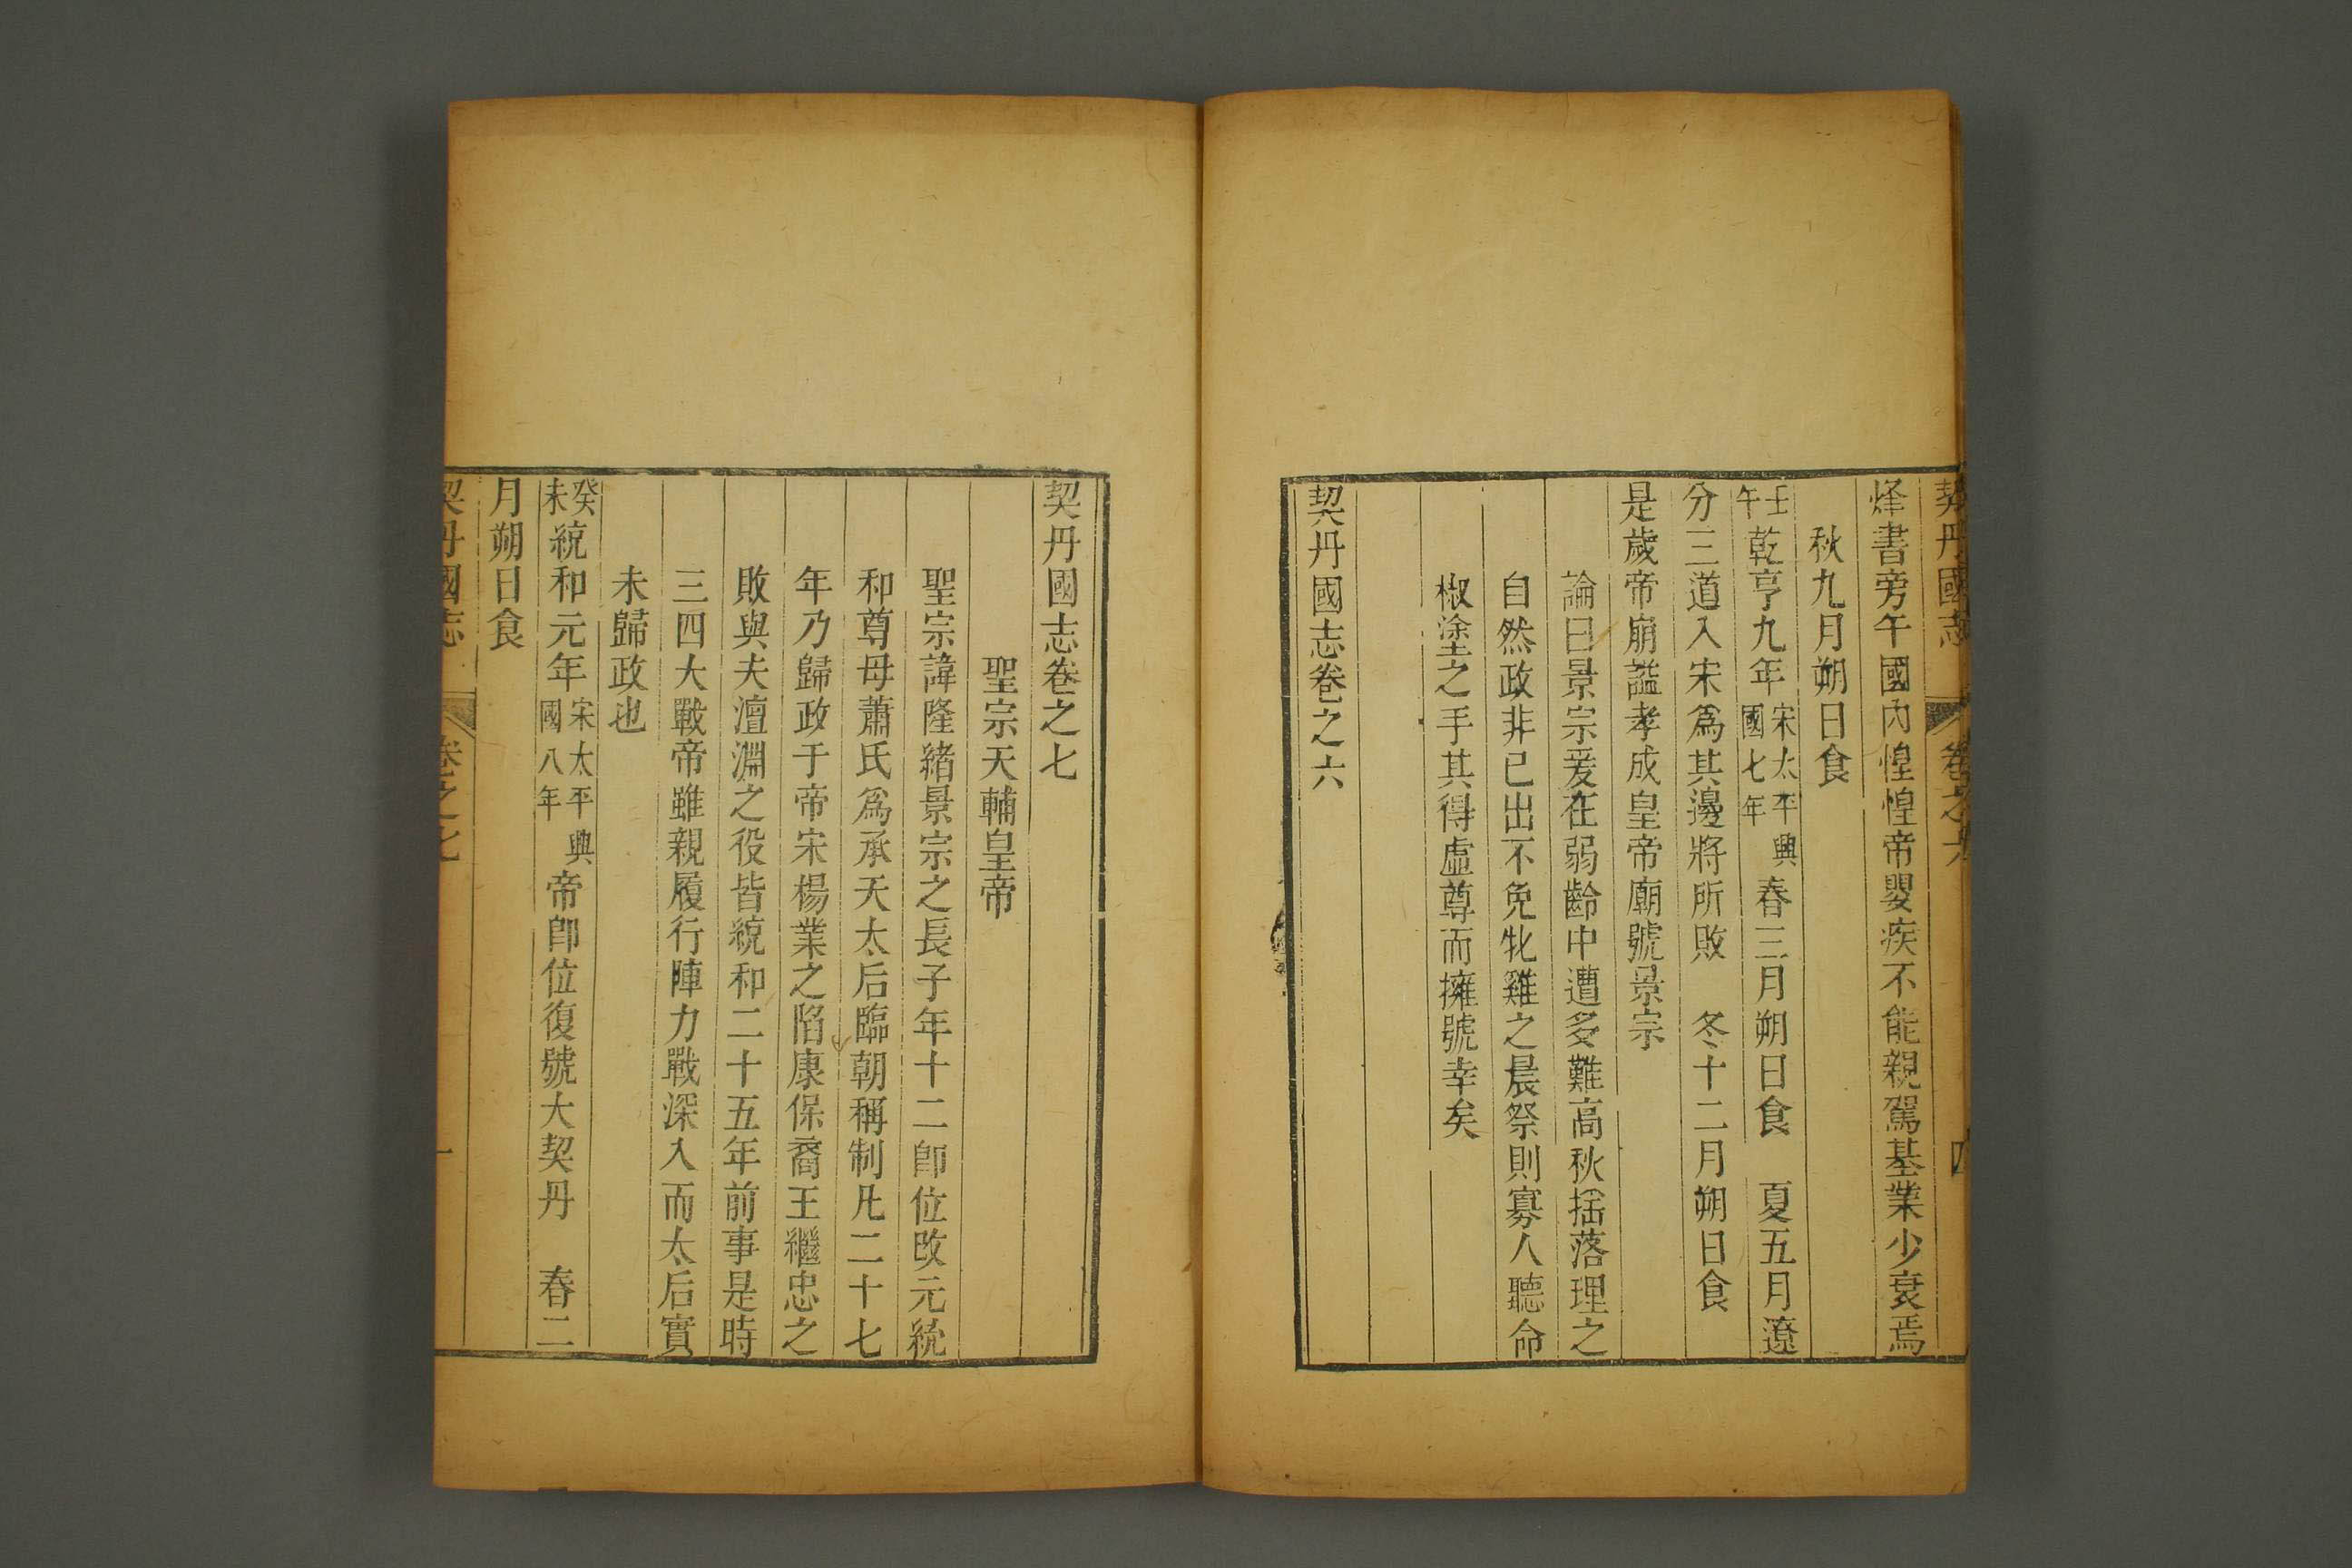 契丹國志 卷之六 四
烽書旁午國內惶惶帝嬰疾不能親駕基業少衰焉
秋九月朔日食
壬午乾亨九年宋太平興國七年春三月朔日食 夏五月遼
分三道入宋爲其邊將所敗 冬十二月朔日食
是歲帝崩謚孝成皇帝廟號景宗
論曰景宗爰在弱齡中遭多難高秋揺落理之
自然政非已出不免牝雞之晨祭則寡人聽命
椒塗之手其得虛尊而擁號幸矣
契丹國志卷之六
契丹國志卷之七
聖宗天輔皇帝
聖宗諱隆緒景宗之長子年十二卽位改元統
和尊母蕭氏爲承天太后臨朝稱制凡二十七
年乃歸政于帝宋楊業之陷康保裔王繼忠之
敗與夫澶淵之役皆統和二十五年前事是時
三四大戰帝雖親履行陣力戰深入而太后實
未歸政也
癸未統和元年宋太平興國八年帝卽位復號大契丹 春二
月朔日食
契丹國志 卷之七 一